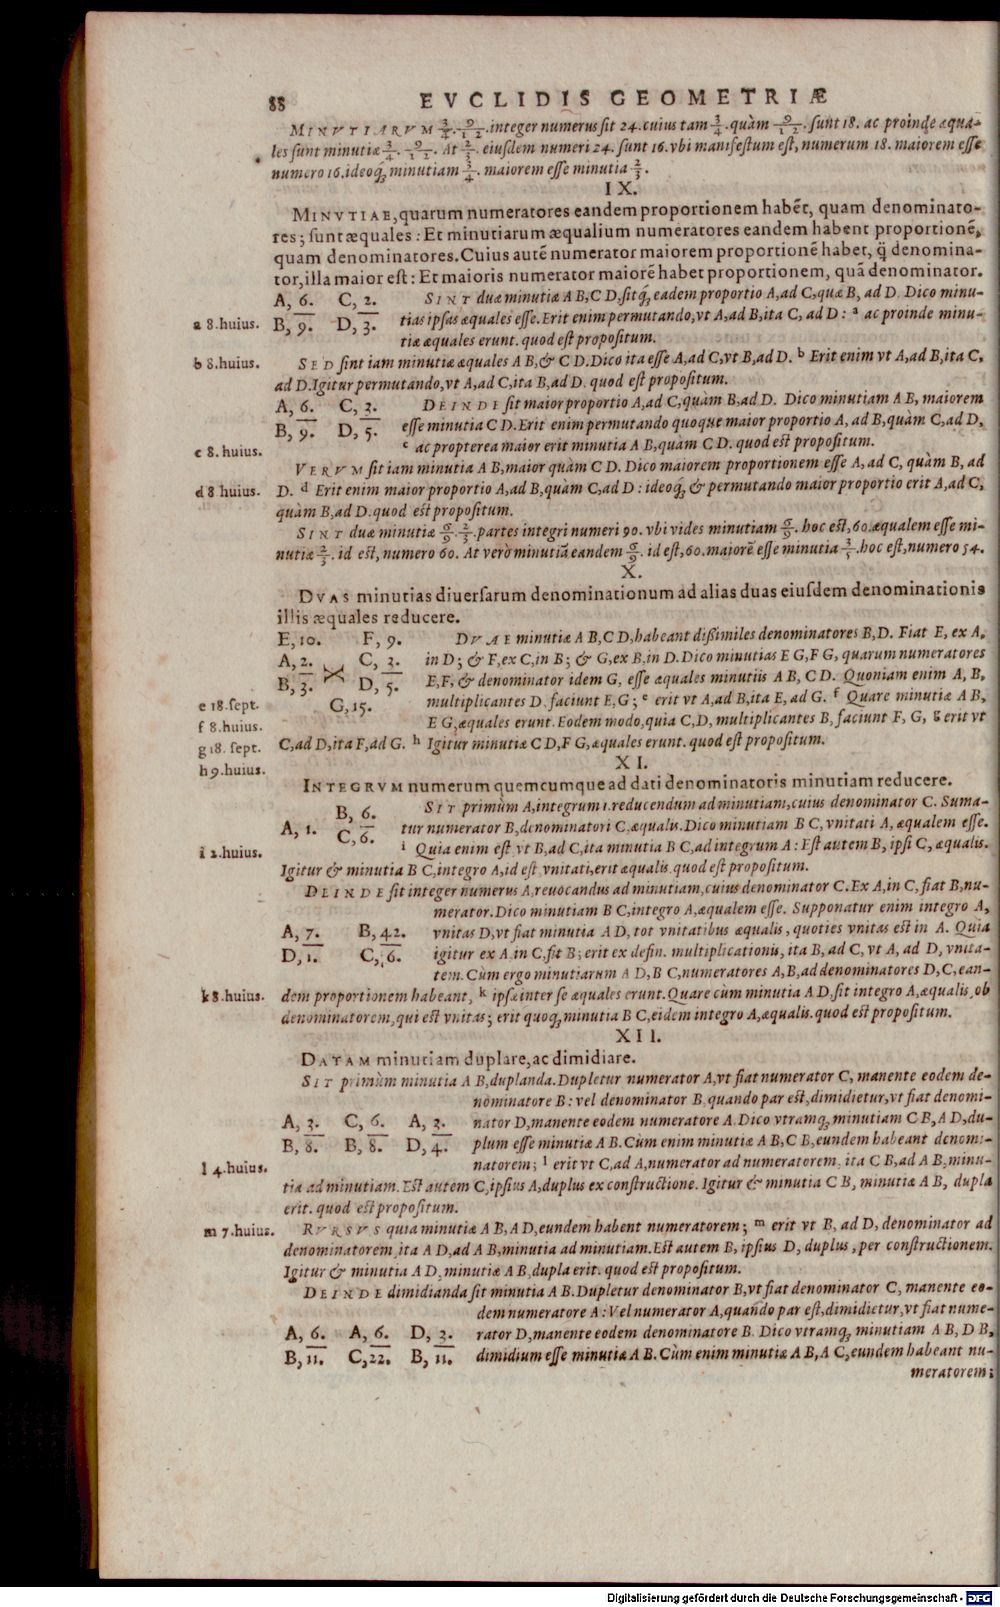 88
EVCLIDIS GEOMETRIÆ
MINVTIARVM 3/4. 9/12. integer numerus sit 24. cuius tam 3/4. quàm 9/12. sunt 18. ac proinde æqua-
les sunt minutiæ 3/4. 9/12. At 2/3. eiusdem numeri 24. sunt 16. vbi manifestum est, numerum 18. maiorem esse
numero 16. ideoq́; minutiam 3/4. maiorem esse minutia 2/3.
IX.
MINVTIAE, quarum numeratores eandem proportionem habēt, quam denominato-
res; sunt æquales: Et minutiarum æqualium numeratores eandem habent proportionē,
quam denominatores. Cuius autē numerator maiorem proportionē habet, q̃ denomina-
tor, illa maior est: Et maioris numerator maiorē habet proportionem, quā denominator.
A, 6. C, 2. SINT duæ minutiæ A B, C D, sitq́; eadem proportio A, ad C, quæ B, ad D. Dico minu-
a 8. huius. B, 9. D, 3. tias ipsas æquales esse. Erit enim permutando, vt A, ad B, ita C, ad D: a ac proinde minu-
tiæ æquales erunt. quod est propositum.
b 8. huius. SED sint iam minutiæ æquales A B, & C D. Dico ita esse A, ad C, vt B, ad D. b Erit enim vt A, ad B, ita C,
ad D. Igitur permutando, vt A, ad C, ita B, ad D. quod est propositum.
A, 6. C, 3. DEINDE sit maior proportio A, ad C, quàm B, ad D. Dico minutiam A B, maiorem
B, 9. D, 5. esse minutia C D. Erit enim permutando quoque maior proportio A, ad B, quàm C, ad D,
c 8. huius. c ac propterea maior erit minutia A B, quàm C D. quod est propositum.
VERVM sit iam minutia A B, maior quàm C D. Dico maiorem proportionem esse A, ad C, quàm B, ad
d 8 huius. D. d Erit enim maior proportio A, ad B, quàm C, ad D: ideoq́; & permutando maior proportio erit A, ad C,
quàm B, ad D. quod est propositum.
SINT duæ minutiæ 6/9. 2/3. partes integri numeri 90. vbi vides minutiam 6/9. hoc est, 60. æqualem esse mi-
nutiæ 2/3. id est, numero 60. At verò minutiā eandem 6/9. id est, 60. maiorē esse minutia 3/5. hoc est, numero 54.
X.
DVAS minutias diuersarum denominationum ad alias duas eiusdem denominationis
illis æquales reducere.
E, 10. F, 9. DVAE minutiæ A B, C D, habeant dissimiles denominatores B, D. Fiat E, ex A,
A, 2. C, 3. in D; & F, ex C, in B; & G, ex B, in D. Dico minutias E G, F G, quarum numeratores
B, 3. D, 5. E, F, & denominator idem G, esse æquales minutiis A B, C D. Quoniam enim A, B,
e 18. sept. G, 15. multiplicantes D, faciunt E, G; e erit vt A, ad B, ita E, ad G. f Quare minutiæ A B,
f 8. huius. E G, æquales erunt. Eodem modo, quia C, D, multiplicantes B, faciunt F, G, g erit vt
g 18. sept. C, ad D, ita F, ad G. h Igitur minutiæ C D, F G, æquales erunt. quod est propositum.
h 9. huius.
XI.
INTEGRVM numerum quemcumque ad dati denominatoris minutiam reducere.
B, 6. SIT primùm A, integrum 1. reducendum ad minutiam, cuius denominator C. Suma-
A, 1. C, 6. tur numerator B, denominatori C, æqualis. Dico minutiam B C, vnitati A, æqualem esse.
i 2. huius. i Quia enim est vt B, ad C, ita minutia B C, ad integrum A: Est autem B, ipsi C, æqualis.
Igitur & minutia B C, integro A, id est, vnitati, erit æqualis. quod est propositum.
DEINDE sit integer numerus A, reuocandus ad minutiam, cuius denominator C. Ex A, in C, fiat B, nu-
merator. Dico minutiam B C, integro A, æqualem esse. Supponatur enim integro A,
A, 7. B, 42. vnitas D, vt fiat minutia A D, tot vnitatibus æqualis, quoties vnitas est in A. Quia
D, 1. C, 6. igitur ex A, in C, fit B; erit ex defin. multiplicationis, ita B, ad C, vt A, ad D, vnita-
tem. Cùm ergo minutiarum A D, B C, numeratores A, B, ad denominatores D, C, ean-
k 8. huius. dem proportionem habeant, k ipsæ inter se æquales erunt. Quare cùm minutia A D, sit integro A, æqualis, ob
denominatorem, qui est vnitas; erit quoq; minutia B C, eidem integro A, æqualis. quod est propositum.
XII.
DATAM minutiam duplare, ac dimidiare.
SIT primùm minutia A B, duplanda. Dupletur numerator A, vt fiat numerator C, manente eodem de-
nominatore B: vel denominator B, quando par est, dimidietur, vt fiat denomi-
A, 3. C, 6. A, 3. nator D, manente eodem numeratore A. Dico vtramq; minutiam C B, A D, du-
B, 8. B, 8. D, 4. plum esse minutiæ A B. Cùm enim minutiæ A B, C B, eundem habeant denomi-
l 4. huius. natorem; l erit vt C, ad A, numerator ad numeratorem, ita C B, ad A B, minu-
tia ad minutiam. Est autem C, ipsius A, duplus ex constructione. Igitur & minutia C B, minutiæ A B, dupla
erit. quod est propositum.
m 7. huius. RVRSVS quia minutiæ A B, A D, eundem habent numeratorem; m erit vt B, ad D, denominator ad
denominatorem, ita A D, ad A B, minutia ad minutiam. Est autem B, ipsius D, duplus, per constructionem.
Igitur & minutia A D, minutiæ A B, dupla erit. quod est propositum.
DEINDE dimidianda sit minutia A B. Dupletur denominator B, vt fiat denominator C, manente eo-
dem numeratore A: Vel numerator A, quando par est, dimidietur, vt fiat nume-
A, 6. A, 6. D, 3. rator D, manente eodem denominatore B. Dico vtramq; minutiam A B, D B,
B, 11. C, 22. B, 11. dimidium esse minutiæ A B. Cùm enim minutiæ A B, A C, eundem habeant nu-
meratorem;
Digitalisierung gefördert durch die Deutsche Forschungsgemeinschaft - DFG